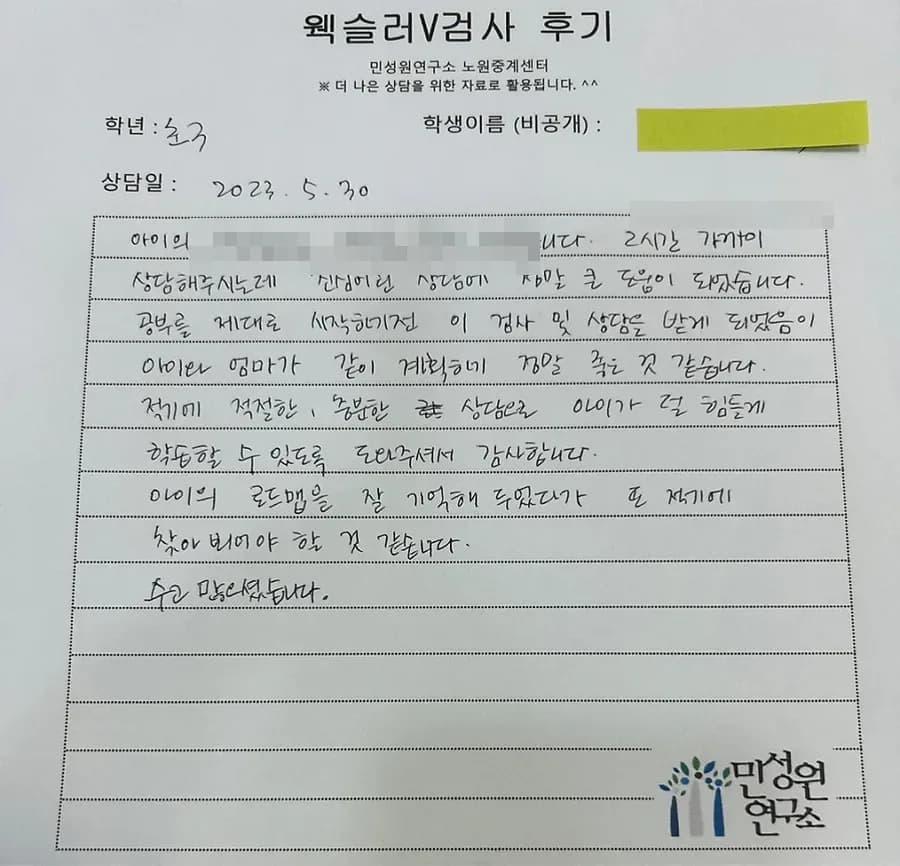 웩슬러V검사 후기
민성원연구소 노원중계센터
※ 더 나은 상담을 위한 자료로 활용됩니다. ^^
학년 : 학생이름 (비공개) :
상담일 : 2023. 5. 30
아이의 니다. 2시간 가까이
상담해주시는데 상담에 정말 큰 도움이 되었습니다.
공부를 제대로 시작하기전 이 검사 및 상담을 받게 되었음이
아이와 엄마가 같이 계획하기 정말 좋은 것 같습니다.
적기에 적절한, 충분한 상담으로 아이가 덜 힘들게
학습할 수 있도록 도와주셔서 감사합니다.
아이의 로드맵을 잘 기억해 두었다가 또 적기에
찾아 뵈어야 할 것 같습니다.
수고 많으셨습니다.
민성원
연구소